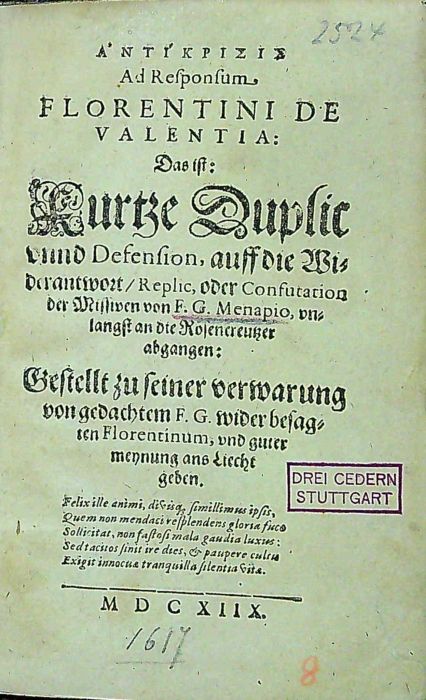 2524
ἈΝΤΙΚΡΙΣΙΣ
Ad Responſum
FLORENTINI DE
VALENTIA:
Das iſt:
Kurtze Duplic
vnnd Defenſion, auff die Wi⸗
derantwort/ Replic, oder Confutation
der Miſſiven von F. G. Menapio, vn⸗
langſt an die Roſencreutzer
abgangen:
Geſtellt zu ſeiner verwarung
von gedachtem F. G. wider beſag⸗
ten Florentinum, vnd guter
meynung ans Liecht
geben.
DREI CEDERN
STUTTGART
Felix ille animi, diviſq; ſimillimus ipſis,
Quem non mendaci reſplendens gloria fuco
Sollicitat, non faſtoſi mala gaudia luxus:
Sed tacitos ſinit ire dies, & paupere cultu
Exigit innocuæ tranquilla ſilentia vitæ.
MDCXIIX.
1617
8